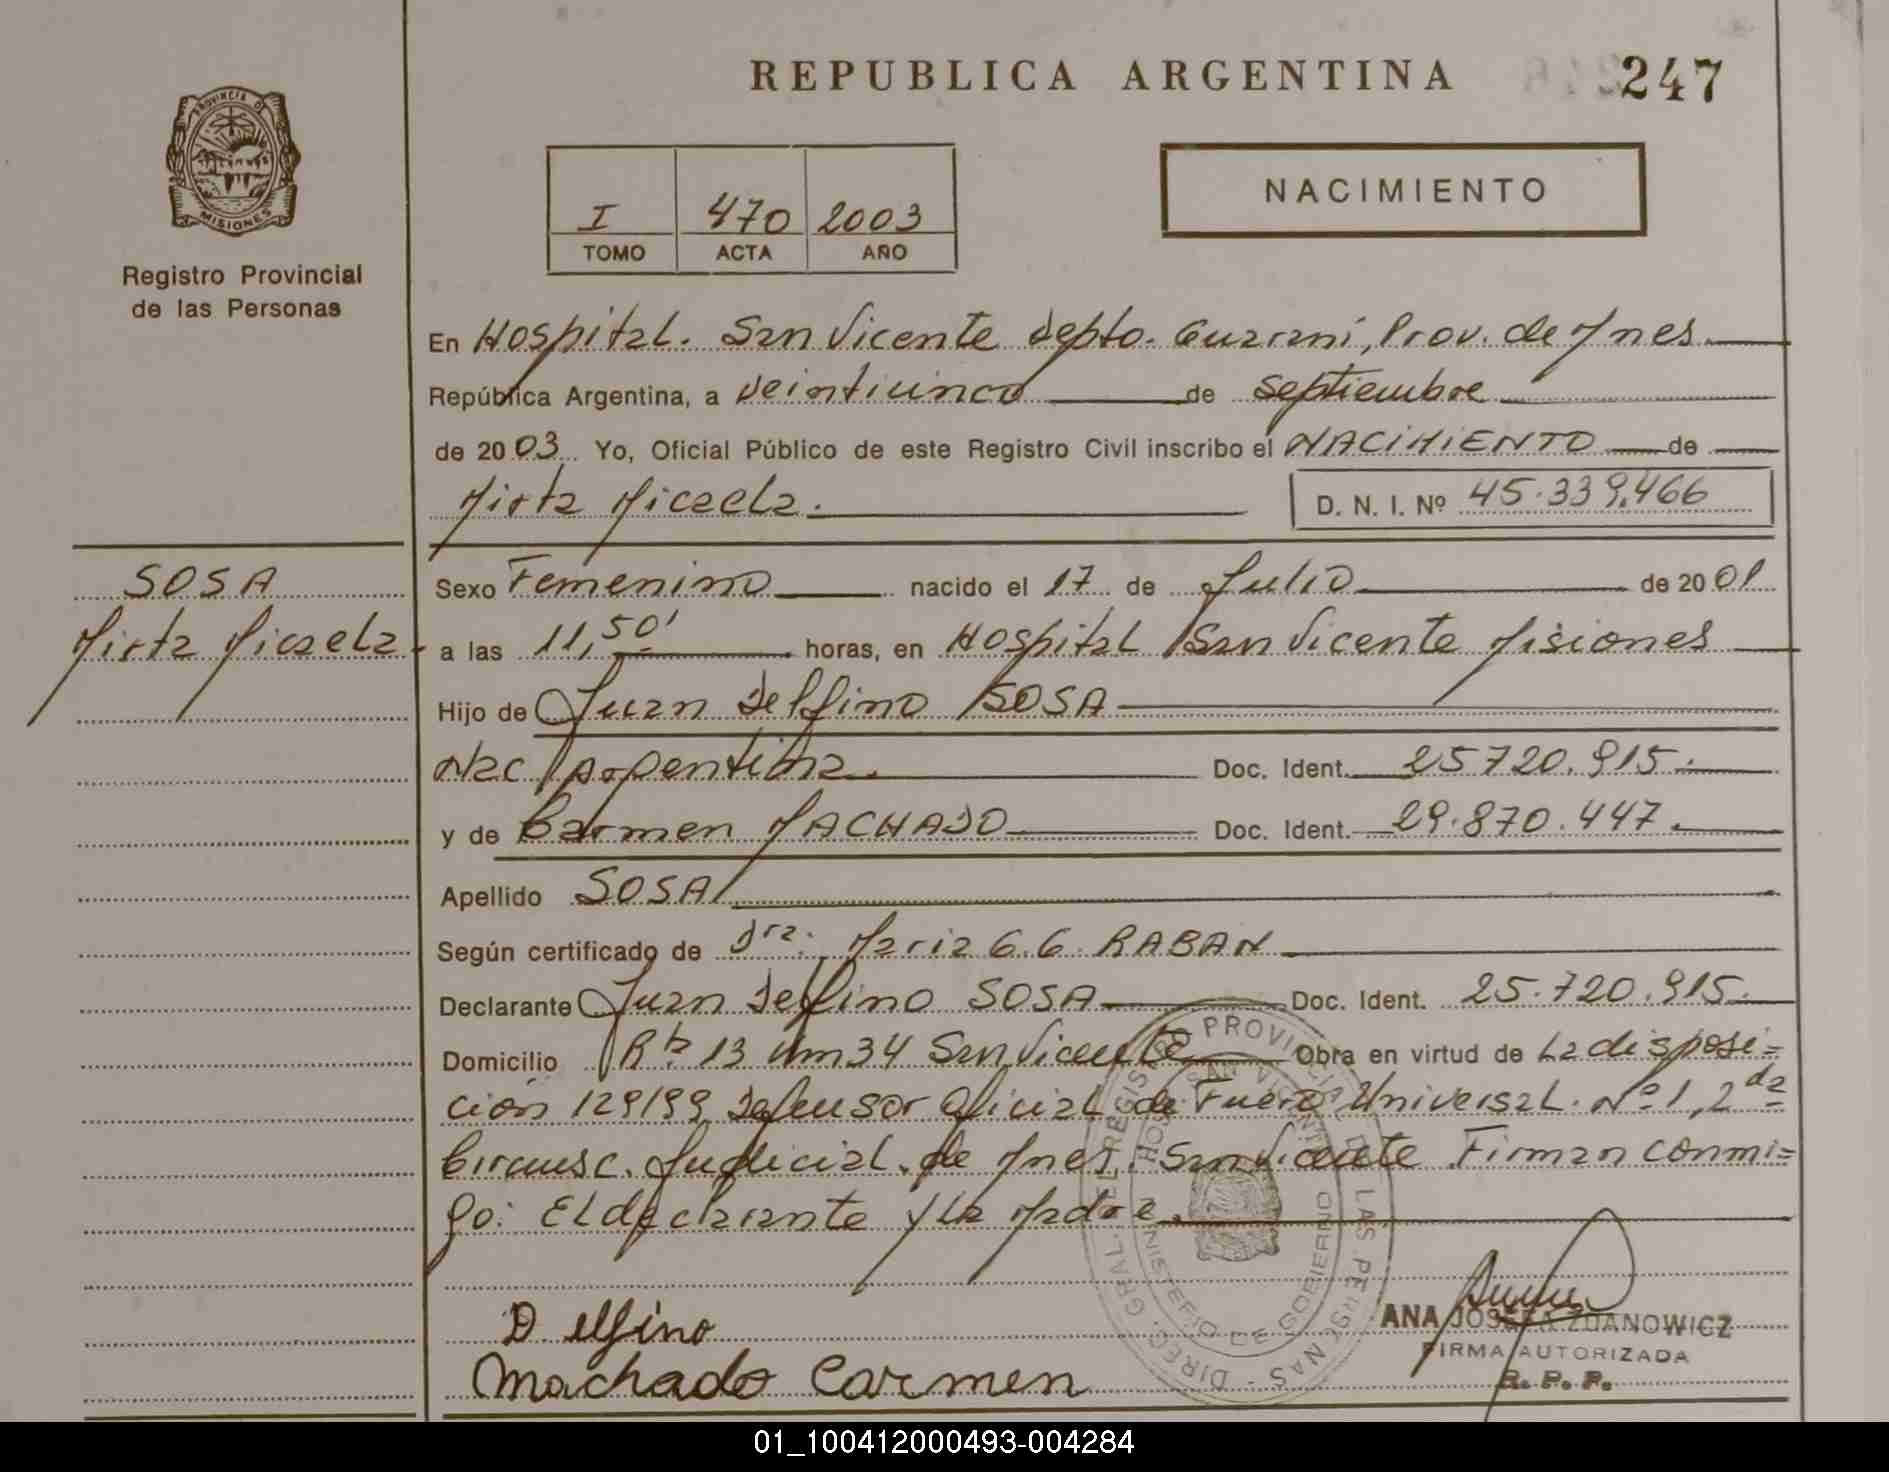 REPUBLICA ARGENTINA
247
PROVINCIA D
MISIONES
Registro Provincial
de las Personas
I 470 2003
TOMO ACTA AÑO
NACIMIENTO
En Hospital. San Vicente Depto. Guaraní, Prov. de Mnes.
República Argentina, a Veinticinco de Septiembre
de 2003. Yo, Oficial Público de este Registro Civil inscribo el NACIMIENTO de
Mirta Micaela.
D. N. I. Nº 45.339.466
SOSA
Mirta Micaela
Sexo Femenino nacido el 17 de Julio de 2001
a las 11,50' horas, en Hospital San Vicente Misiones
Hijo de Juan Delfino SOSA
Nac Argentina. Doc. Ident. 25720.915.
y de Carmen MACHADO Doc. Ident. 29.870.447.
Apellido SOSA
Según certificado de Dra. Maria G.G. RABAN
Declarante Juan Delfino SOSA Doc. Ident. 25.720.915.
Domicilio Rta 13 Km 34 San Vicente Obra en virtud de La disposi=
ción 129/99 Defensor Oficial de Fuero Universal. Nº 1, 2da
Circunsc. Judicial. de Mnes. San Vicente Firman conmi=
go: El declarante y la Madre.
D. elfino
Machado Carmen
DIREC. GRAL. DEL REGISTRO PROVINCIAL DE LAS PERSONAS
MINISTERIO DE GOBIERNO
ANA JOSEFA ZDANOWICZ
FIRMA AUTORIZADA
R. P. P.
01_100412000493-004284